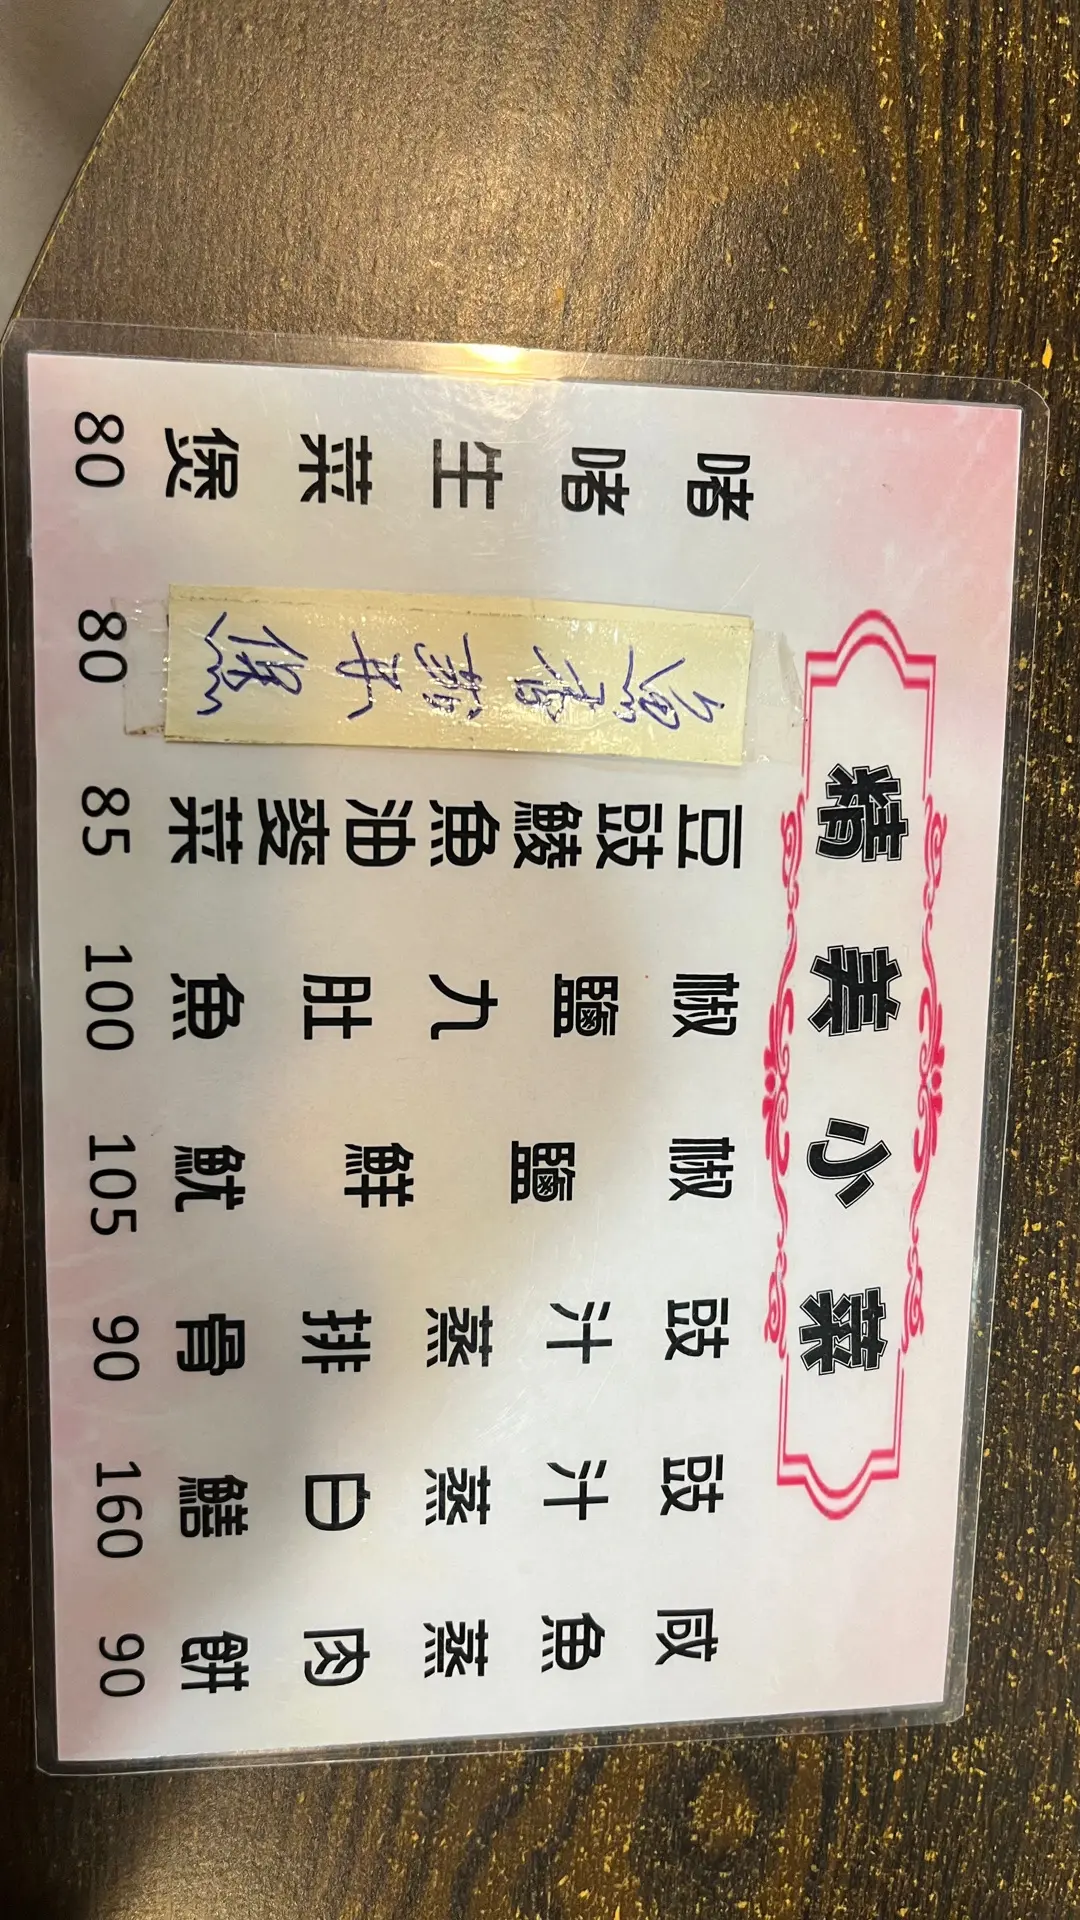 精美小菜
咸魚蒸肉餅 90
豉汁蒸白鱔 160
豉汁蒸排骨 90
椒鹽鮮魷 105
椒鹽九肚魚 100
豆豉鯪魚油麥菜 85
魚香茄子煲 80
啫啫生菜煲 80